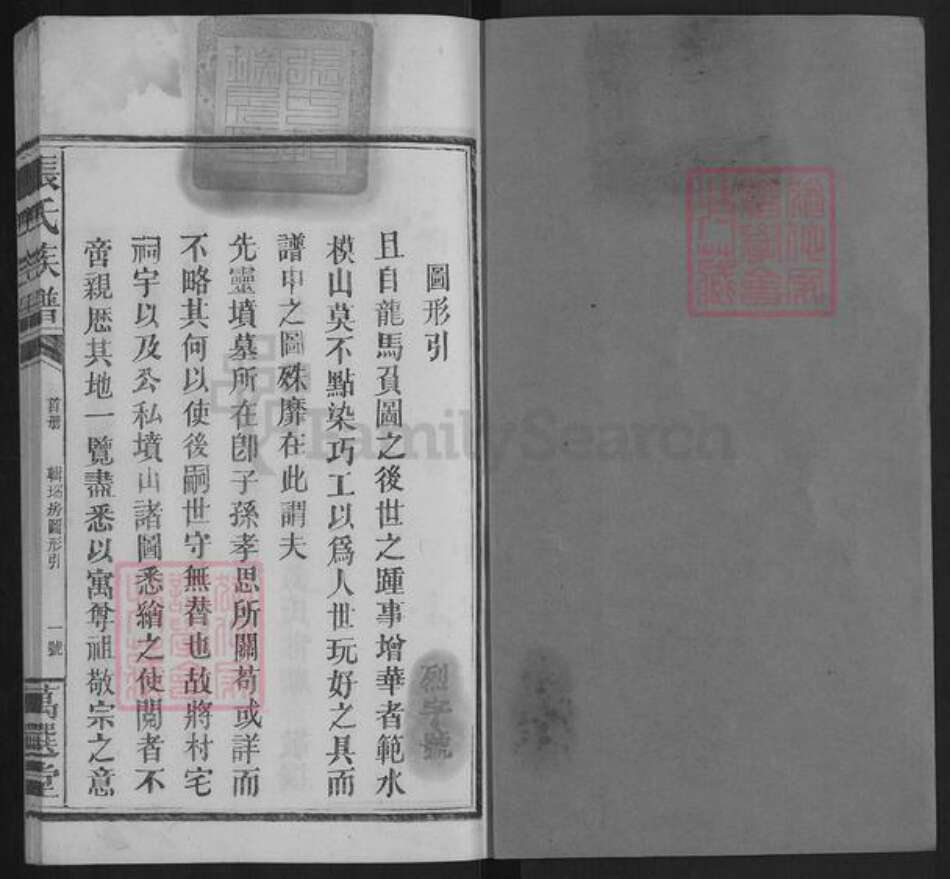 圖形引
且自龍馬頁圖之後世之踵事增華者範水
模山莫不點染巧工以爲人世玩好之具而
譜中之圖殊靡在此謂夫
先靈墳墓所在卽子孫孝思所關苟或詳而
不略其何以使後嗣世守無替也故將村宅
祠宇以及公私墳山諸圖悉繪之使閱者不
啻親歷其地一覽盡悉以寓尊祖敬宗之意
張氏族譜
首册
圖形引
一號
萬選堂
烈字號
FamilySearch